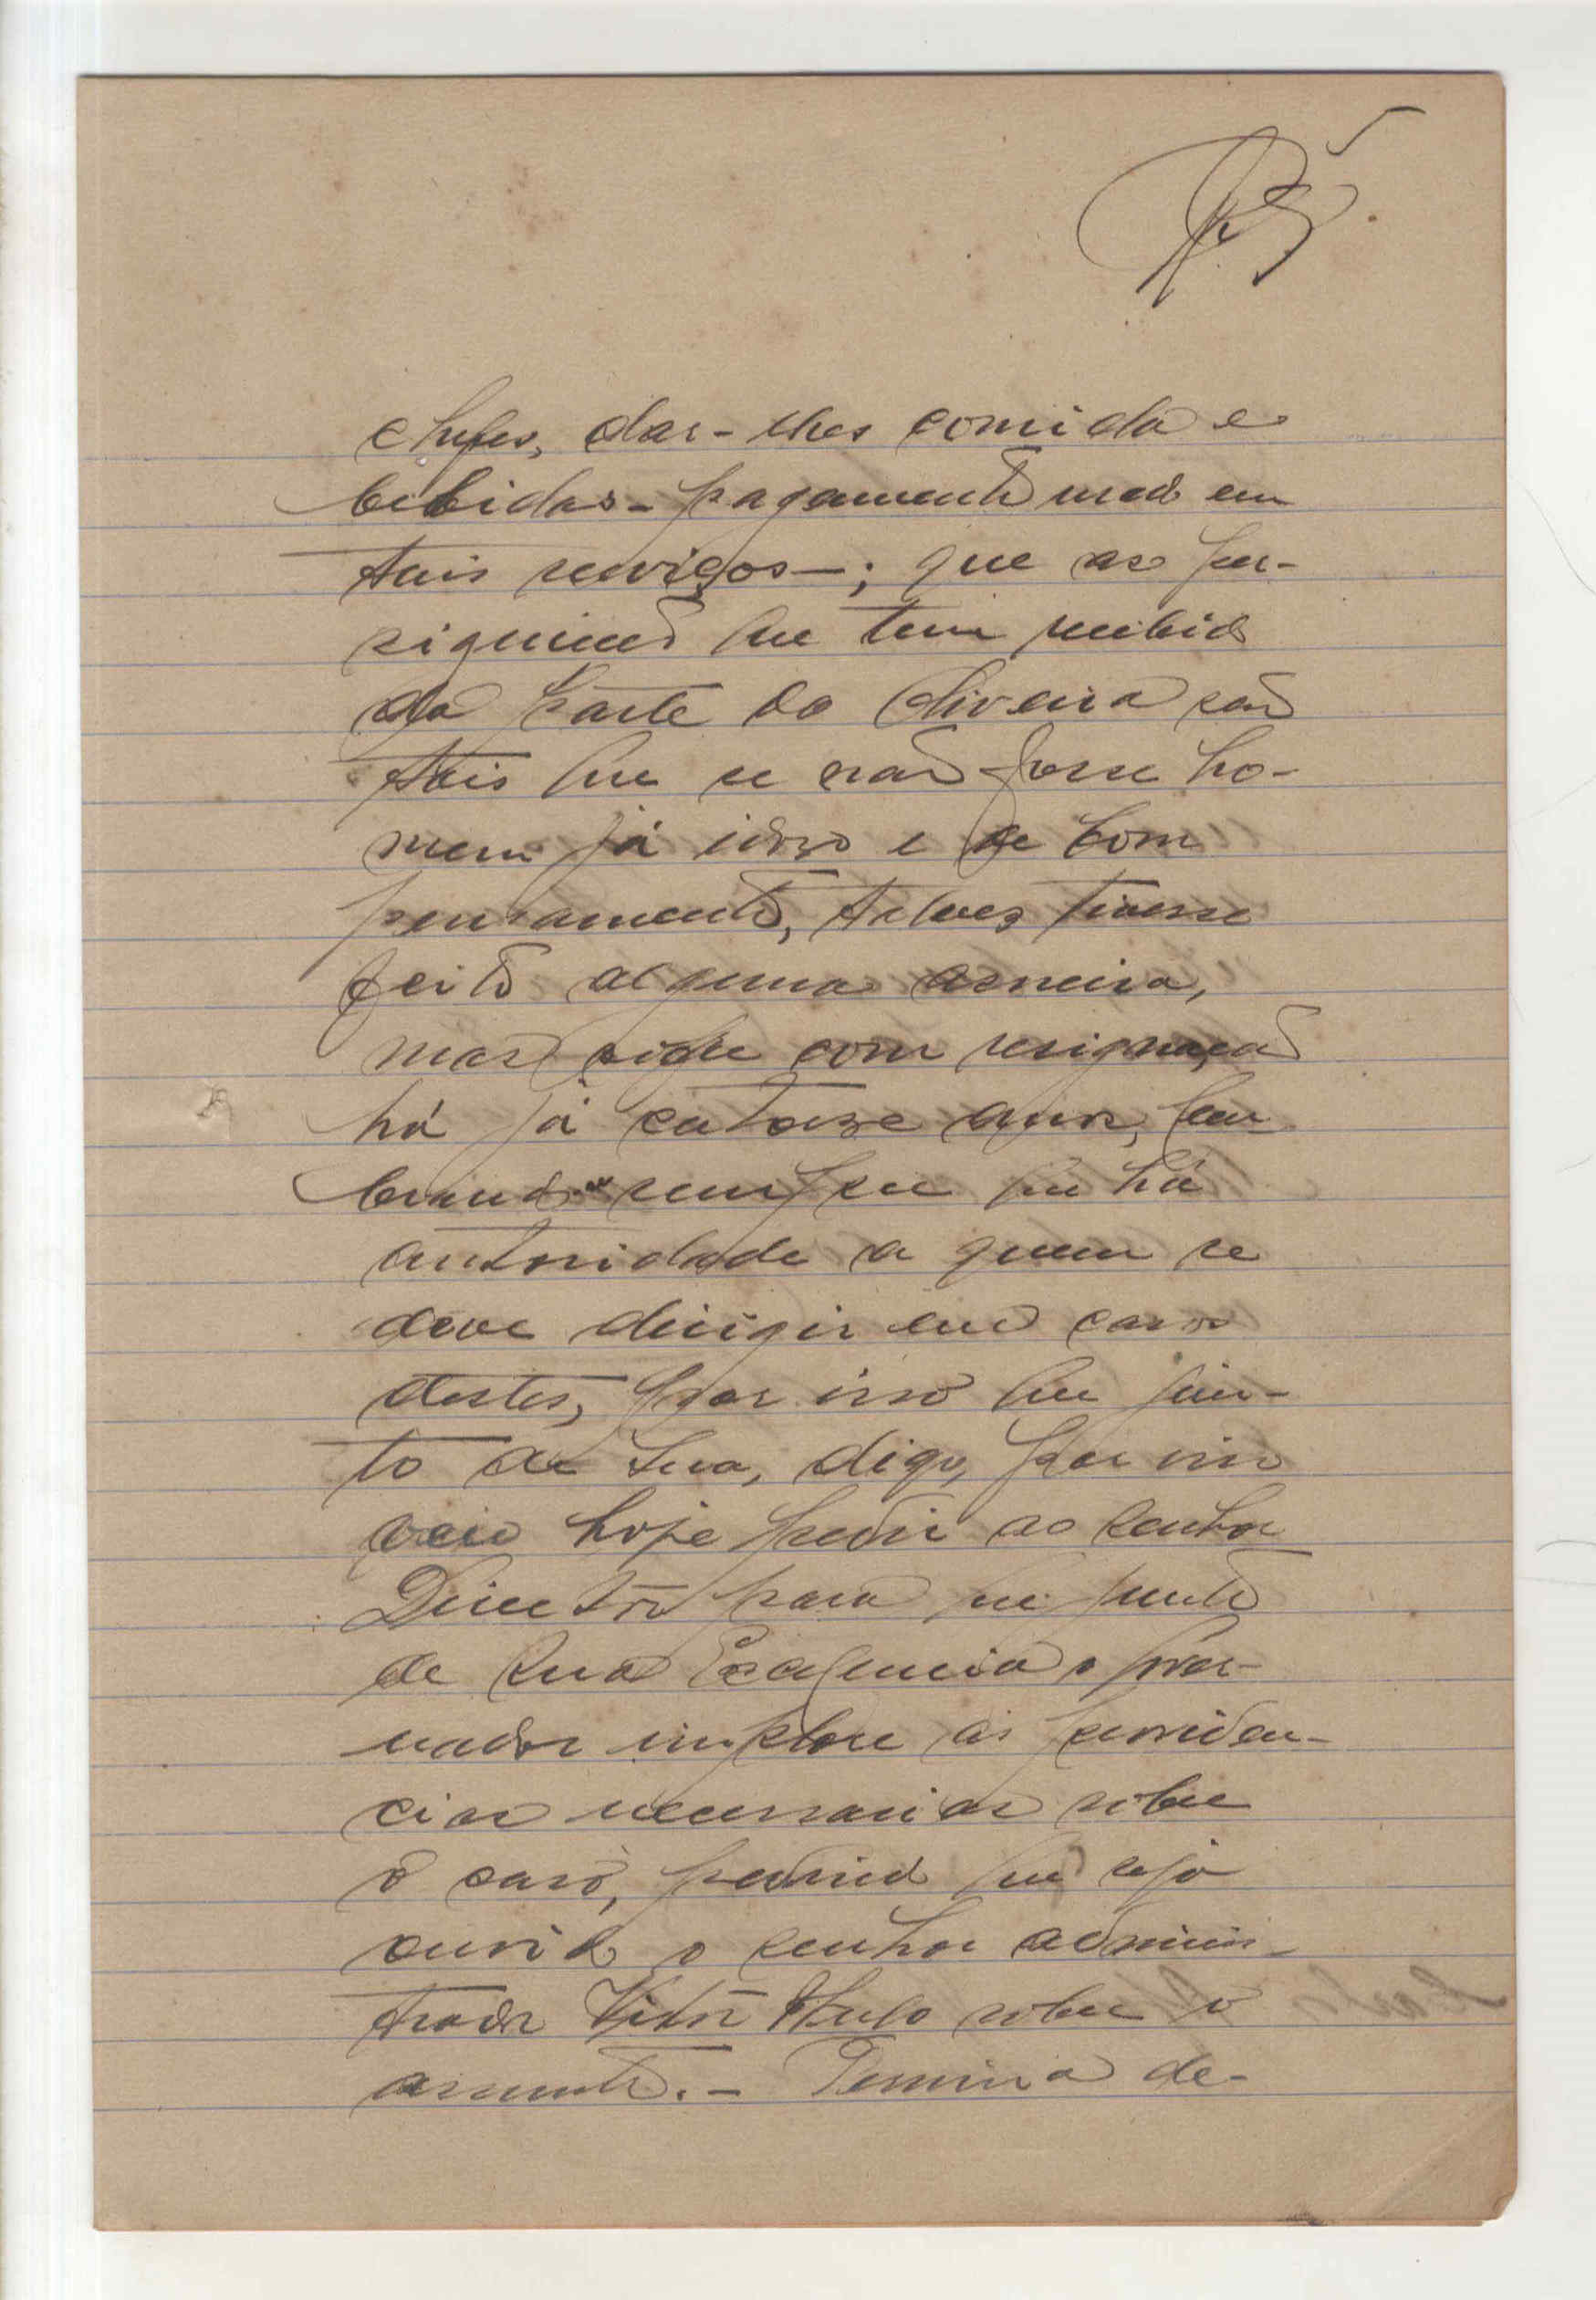 5
chefes, dar-lhes comida e
bebidas - pagamento usado em
tais serviços -; que as per-
siguições que tem recebido
da parte do Oliveira são
tais que se não fosse ho-
mem já idoso e de bom
pensamento, talvez tivesse
feito alguma asneira,
mas sofre com resignação
há já catorze anos, lem-
brando sempre que há
autoridade a quem se
deve dirigir em casos
destes, por isso que jun-
to de Sua, digo, por isso
veio hoje pedir ao senhor
Director para que junto
de Sua Excelencia o Gover-
nador implore as providen-
cias necessarias sobre
o caso, pedindo que seja
ouvido o senhor adminis-
trador Vitor Hugo sobre o
assunto. - Termina de-